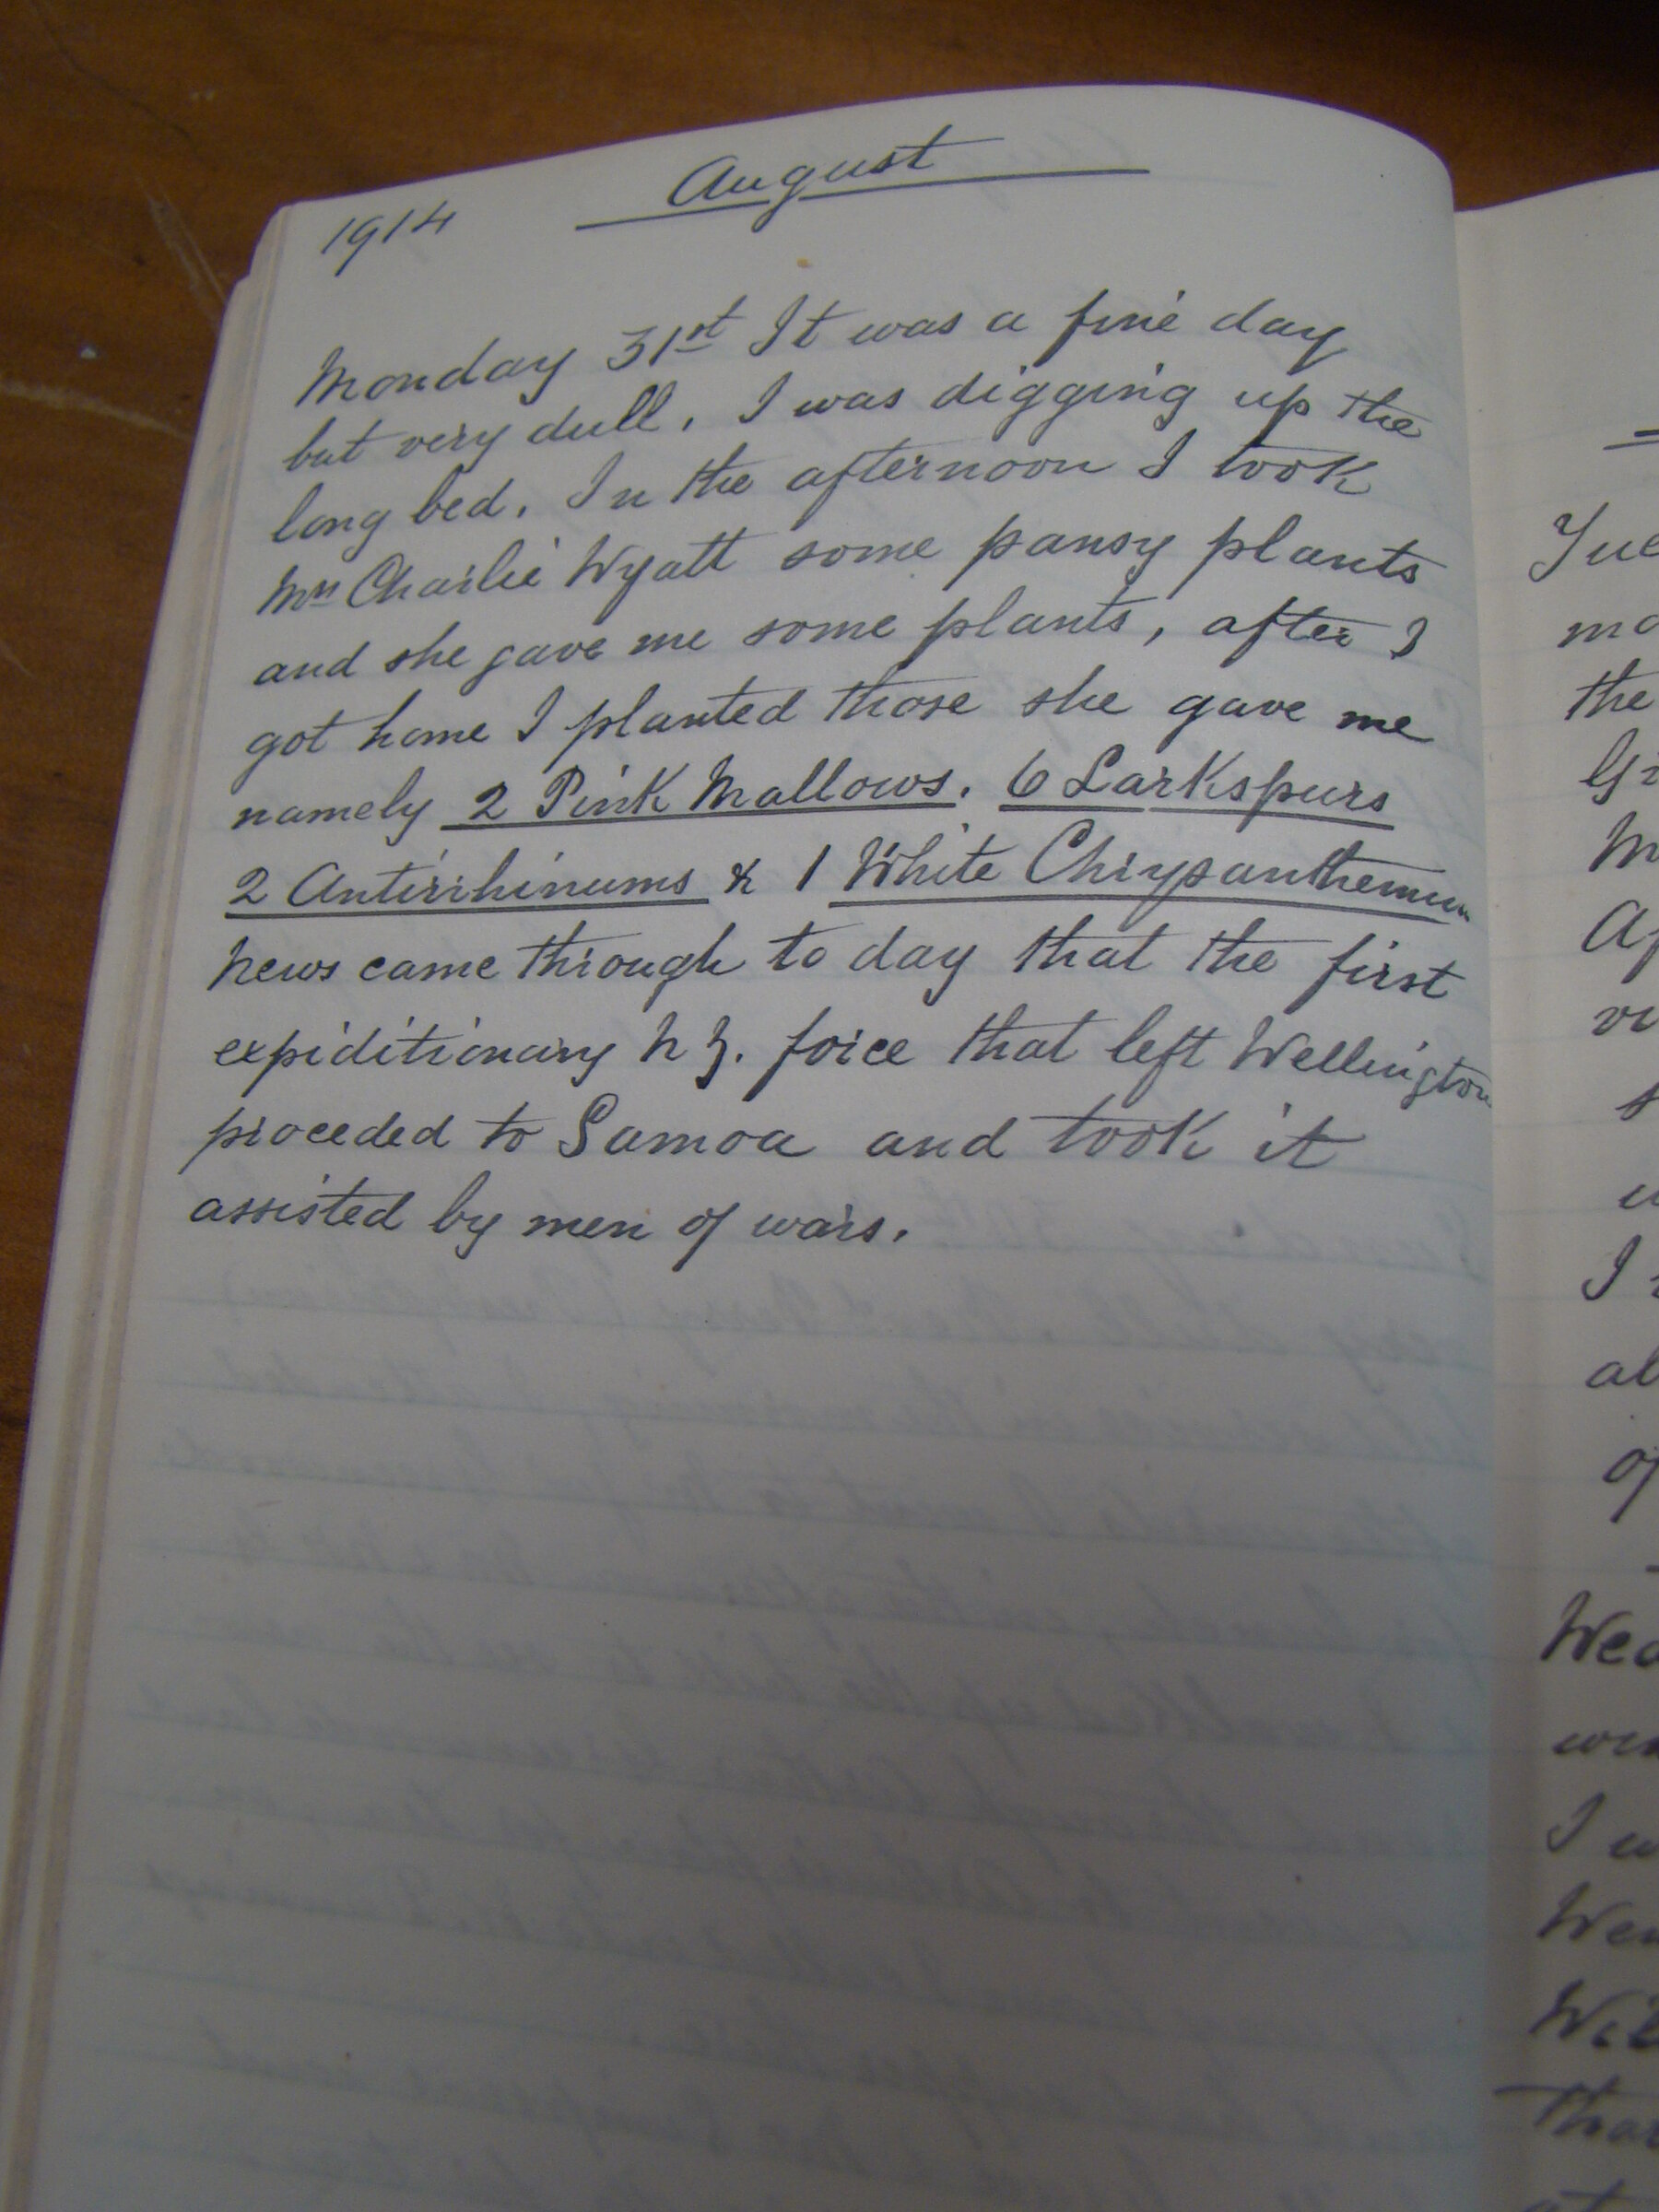 August
1914
Monday 31st It was a fine day
but very dull. I was digging up the
long bed. In the afternoon I took
Mrs Charlie Wyatt some pansy plants
and she gave me some plants, after I
got home I planted those she gave me
namely 2 Pink Mallows. 6 Larkspurs
2 Antirihinums & 1 White Chrysanthemum
News came through to day that the first
expiditionary N Z. force that left Wellington
proceded to Samoa and took it
assisted by men of wars.
Tue
mo
the
M
I
al
of
Wed
I w